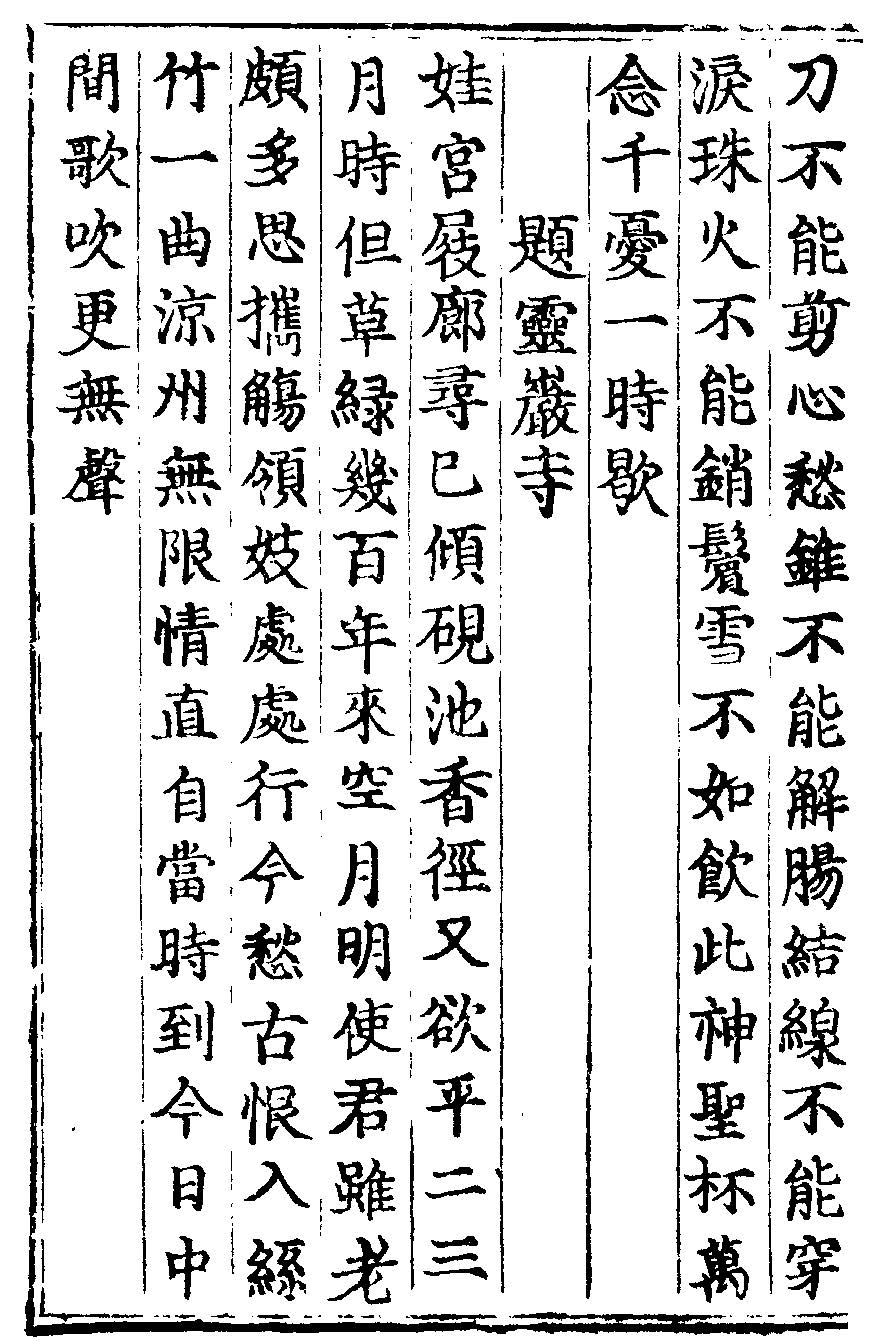 刀不能剪心愁錐不能解腸結線不能穿
淚珠火不能銷鬢雪不如飮此神聖杯萬
念千憂一時歇
題靈巖寺
娃宮屐廊尋已傾硯池香徑又欲平二三
月時但草緑幾百年來空月明使君雖老
頗多思攜觴領妓處處行今愁古恨入絲
竹一曲涼州無限情直自當時到今日中
間歌吹更無聲